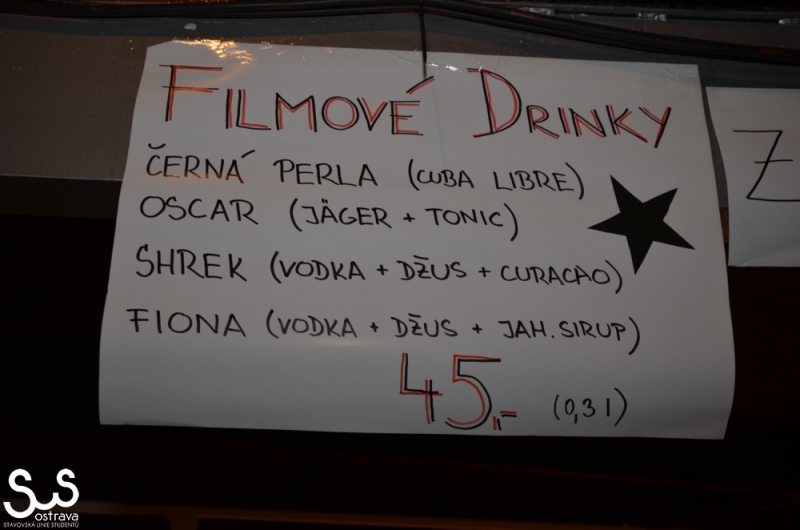 FILMOVÉ DRINKY
ČERNÁ PERLA (CUBA LIBRE)
OSCAR (JÄGER + TONIC)
SHREK (VODKA + DŽUS + CURACAO)
FIONA (VODKA + DŽUS + JAH. SIRUP)
45,- (0,3 l)
Z
SUS
ostrava
STAVOVSKÁ UNIE STUDENTŮ